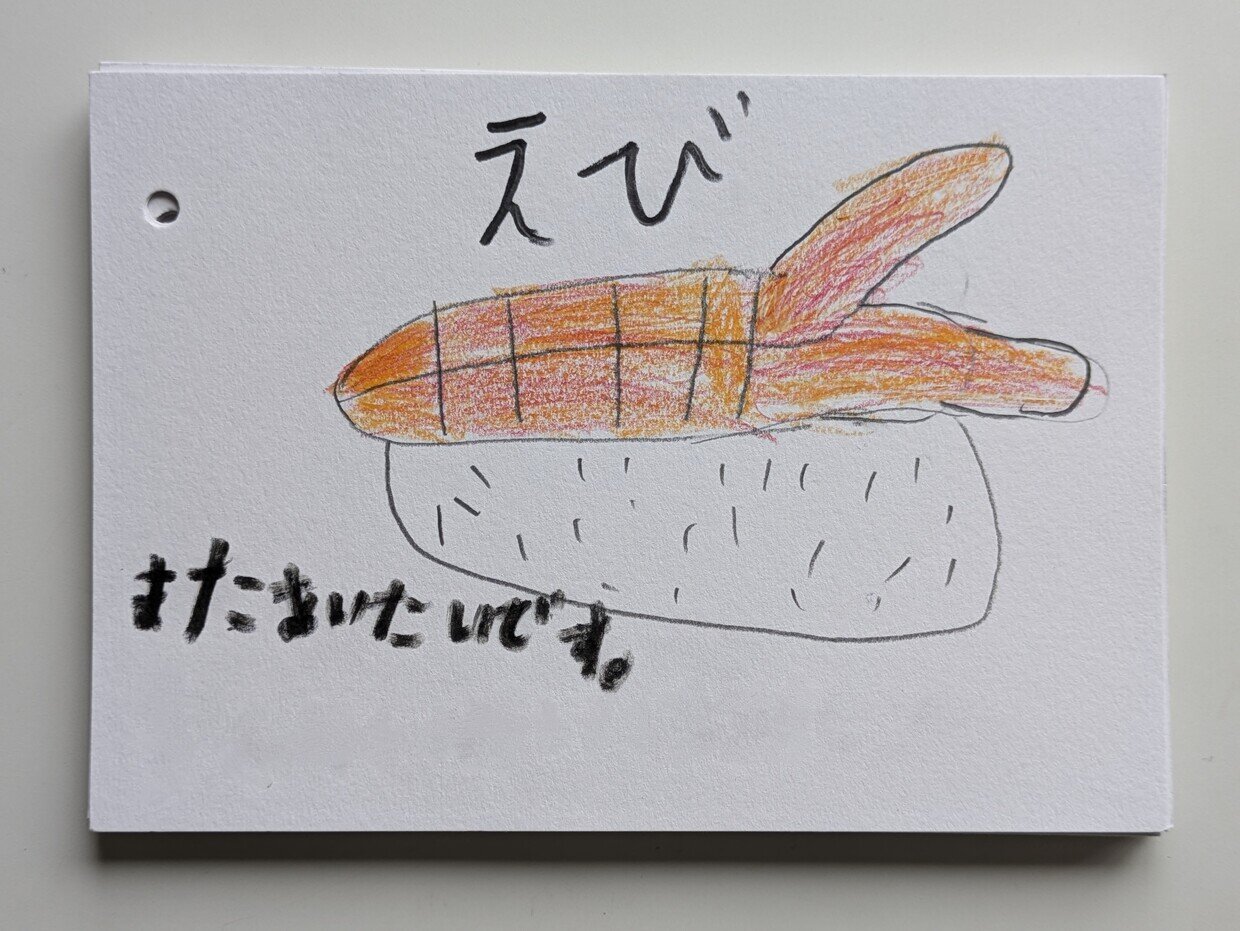 えび
またあいたいです。